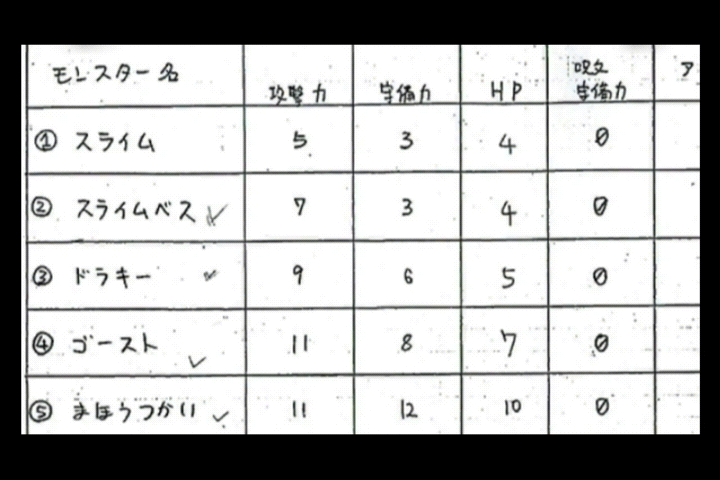 モンスター名 攻撃力 守備力 HP 呪文守備力 ア
① スライム 5 3 4 0
② スライムベス 7 3 4 0
③ ドラキー 9 6 5 0
④ ゴースト 11 8 7 0
⑤ まほうつかい 11 12 10 0